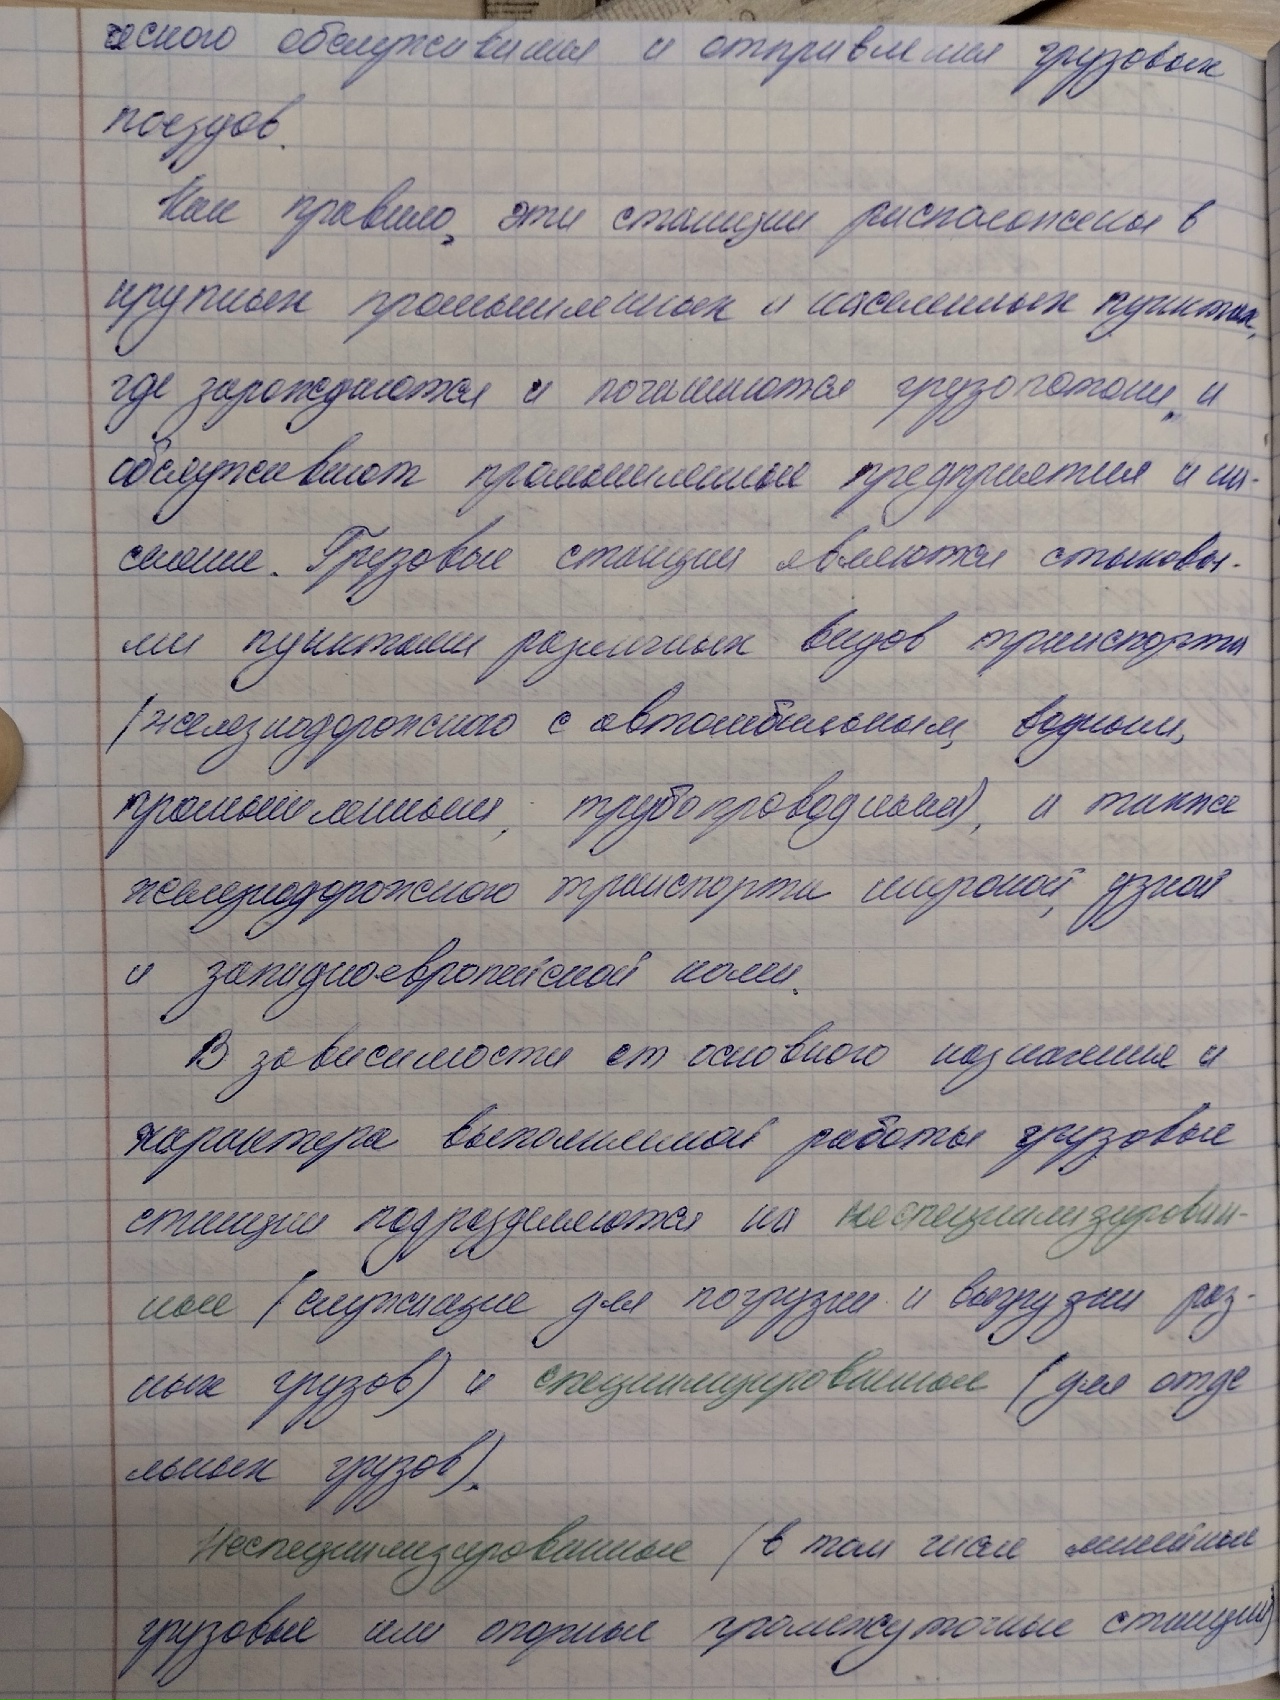 ческого обслуживания и отправления грузовых
поездов.
Как правило, эти станции расположены в
крупных промышленных и населенных пунктах,
где зарождаются и погашаются грузопотоки, и
обслуживают промышленные предприятия и на-
селение. Грузовые станции являются стыковы-
ми пунктами различных видов транспорта
(железнодорожного с автомобильным, водным,
промышленным, трубопроводным), а также
железнодорожного транспорта широкой, узкой
и западноевропейской колеи.
В зависимости от основного назначения и
характера выполняемой работы грузовые
станции подразделяются на неспециализирован-
ные (служащие для погрузки и выгрузки раз-
ных грузов) и специализированные (для отде
льных грузов).
Неспециализированные (в том числе линейные
грузовые или опорные промежуточные станции)